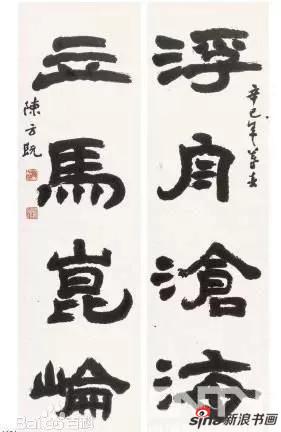 浮舟滄海
辛巳年
立馬崑崘
陳方既
Bai百科
sina新浪书画